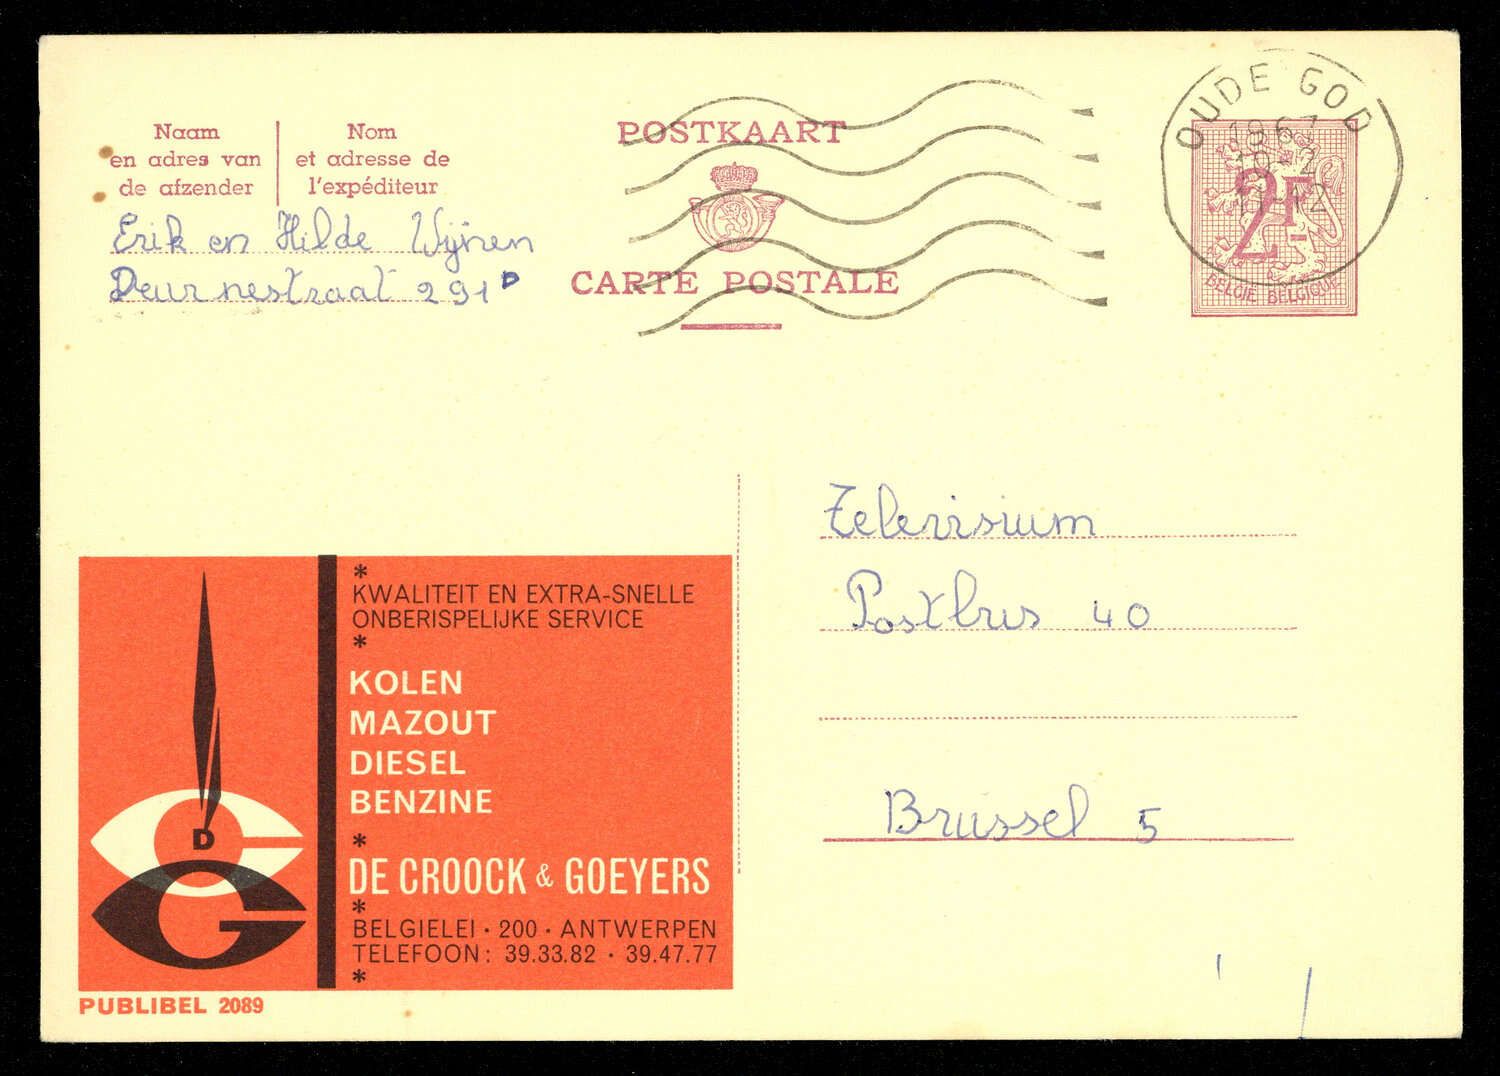 Naam
en adres van
de afzender
Nom
et adresse de
l'expéditeur
Erik en Hilde Wijnen
Deurnestraat 291 D
POSTKAART
CARTE POSTALE
OUDE GOD
1967
2F
BELGIE BELGIQUE
Televisium
Postbus 40
Brussel 5
*
KWALITEIT EN EXTRA-SNELLE
ONBERISPELIJKE SERVICE
*
KOLEN
MAZOUT
DIESEL
BENZINE
*
DE CROOCK & GOEYERS
*
BELGIELEI · 200 · ANTWERPEN
TELEFOON: 39.33.82 · 39.47.77
*
D
C
G
PUBLIBEL 2089